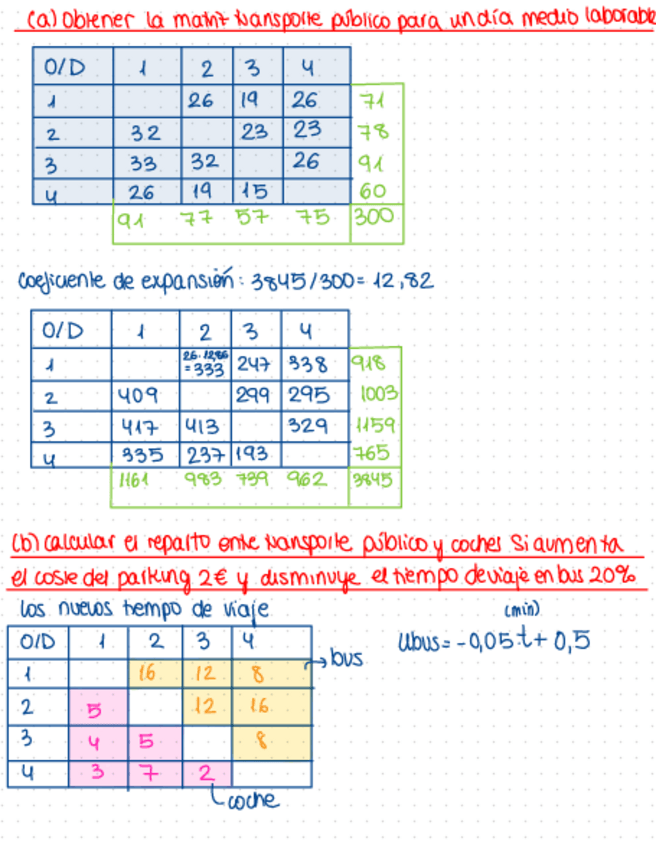 (a) Obtener la matriz transporte público para un día medio laborable
O/D 1 2 3 4
1 26 19 26 71
2 32 23 23 78
3 33 32 26 91
4 26 19 15 60
91 77 57 75 300
Coeficiente de expansión: 3845/300 = 12,82
O/D 1 2 3 4
1 26·12,86 = 333 247 338 918
2 409 299 295 1003
3 417 413 329 1159
4 335 237 193 765
1161 983 739 962 3845
(b) Calcular el reparto entre transporte público y coches si aumenta
el coste del parking 2€ y disminuye el tiempo de viaje en bus 20%
los nuevos tiempo de viaje
(min)
O/D 1 2 3 4
Ubus = -0,05·t + 0,5
1 16 12 8
bus
2 5 12 16
3 4 5 8
4 3 7 2
coche